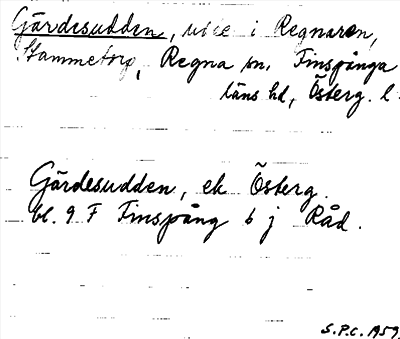 Gärdesudden, udde i Regnaren,
Stammetorp, Regna sn. Finspånga
läns hd, Österg. l.
Gärdesudden, ek Österg.
bl. 9 F Finspång 6 j Råd.
S.P.C. 1959